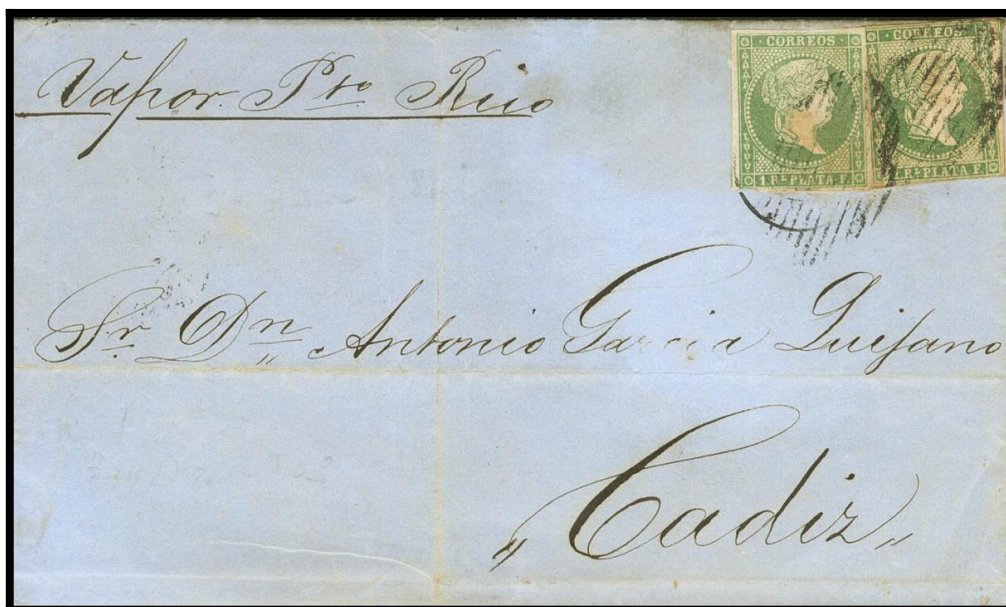 Vapor Pto Rico
CORREOS
CORREOS
1 RL PLATA F.
1 RL PLATA F.
Sr. Dn Antonio Garcia Quijano
"Cadiz"